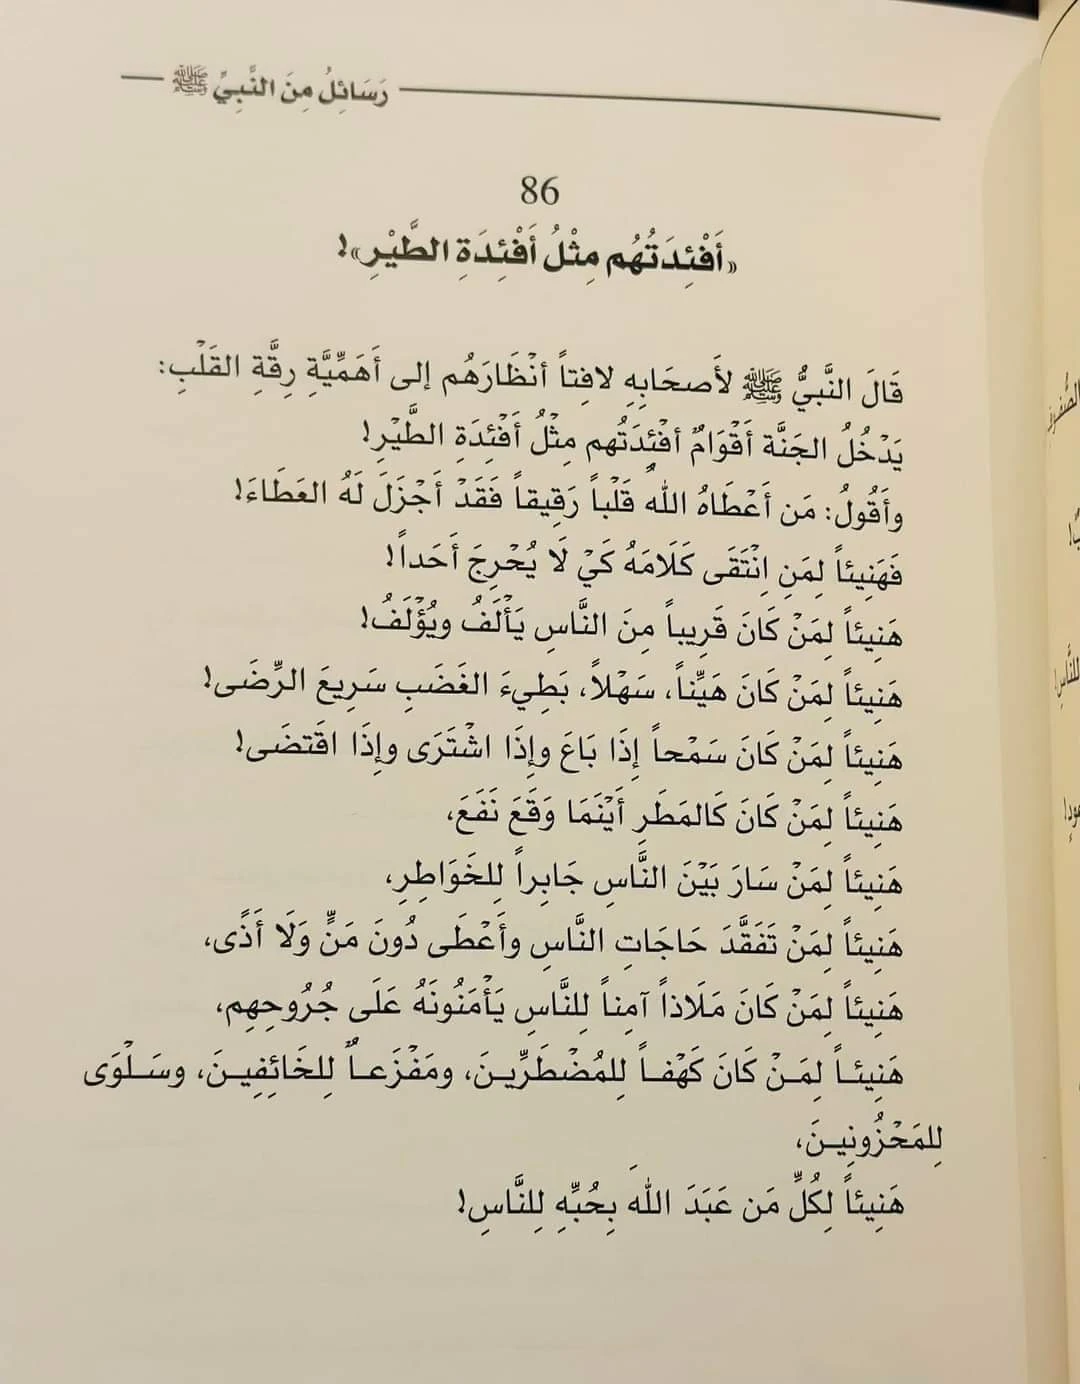 رَسَائِلُ مِنَ النَّبِيِّ ﷺ
86
«أَفْئِدَتُهُم مِثْلُ أَفْئِدَةِ الطَّيْرِ»!
قَالَ النَّبِيُّ ﷺ لأَصحَابِهِ لافِتاً أنْظَارَهُم إلى أَهَمِّيَّةِ رِقَّةِ القَلْبِ:
يَدْخُلُ الجَنَّة أَقْوَامٌ أفْئِدَتُهم مِثْلُ أَفْئِدَةِ الطَّيْرِ!
وأَقُولُ: مَن أَعْطَاهُ اللهُ قَلْباً رَقِيقاً فَقَدْ أجْزَلَ لَهُ العَطَاءَ!
فَهَنِيئاً لِمَنِ اِنْتَقَى كَلَامَهُ كَيْ لَا يُحْرِجَ أَحَداً!
هَنِيئاً لِمَنْ كَانَ قَرِيباً مِنَ النَّاسِ يَأْلَفُ ويُؤْلَفُ!
هَنِيئاً لِمَنْ كَانَ هَيِّناً، سَهْلاً، بَطِيءَ الغَضَبِ سَرِيعَ الرِّضَى!
هَنِيئاً لِمَنْ كَانَ سَمْحاً إِذَا بَاعَ وإِذَا اشْتَرَى وإِذَا اقَتضَى!
هَنِيئاً لِمَنْ كَانَ كَالمَطَرِ أيْنَمَا وَقَعَ نَفَعَ،
هَنِيئاً لِمَنْ سَارَ بَيْنَ النَّاسِ جَابِراً لِلخَوَاطِرِ،
هَنِيئاً لِمَنْ تَفَقَّدَ حَاجَاتِ النَّاسِ وأَعْطَى دُونَ مَنٍّ وَلَا أَذًى،
هَنِيئاً لِمَنْ كَانَ مَلَاذاً آمِناً لِلنَّاسِ يَأْمَنُونَهُ عَلَى جُرُوحِهِم،
هَنِيئاً لِمَنْ كَانَ كَهْفاً لِلمُضْطَرِّينَ، ومَفْزَعاً لِلخَائِفِينَ، وسَلْوَى
لِلمَحْزُونِينَ،
هَنِيئاً لِكُلِّ مَن عَبَدَ اللهَ بِحُبِّهِ لِلنَّاسِ!